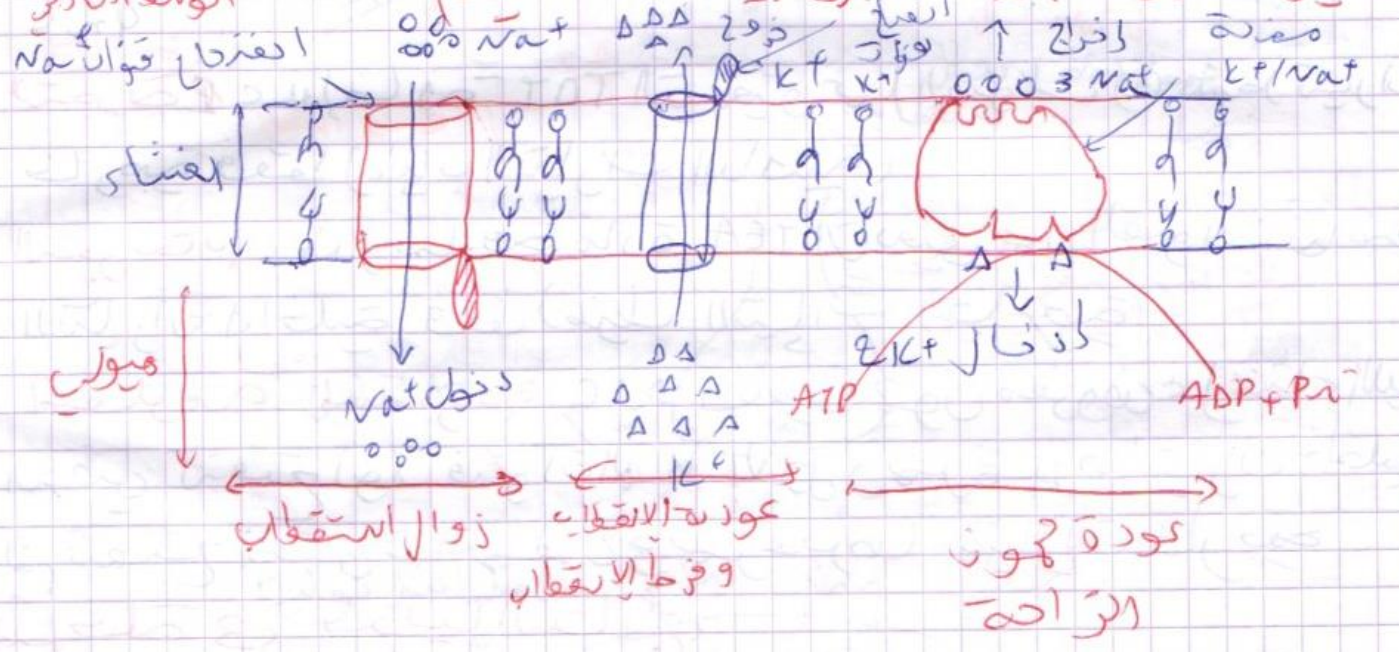 انفتاح قنوات Na+
Na+
خروج K+
انفتاح قنوات K+
إخراج 3 Na+
مضخة K+/Na+
الغشاء
هيولى
دخول Na+
K+
إدخال 2K+
ATP
ADP + Pi
زوال استقطاب
عودة الإستقطاب
و فرط الإستقطاب
عودة كمون
الراحة